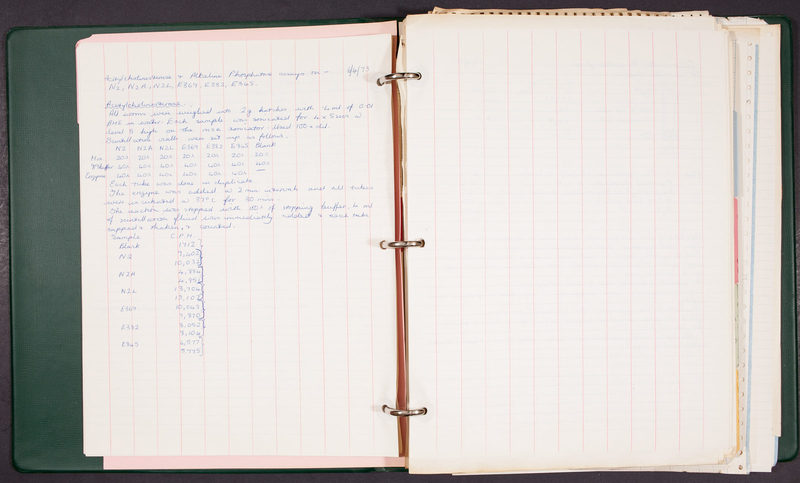 Acetylcholinesterase + Alkaline Phosphatase assays on - 4/73
N2, N2A, N2L, E369, E382, E365.
Acetylcholinesterase.
All worms were weighed into 2g batches with 4 ml of 0.01
in water. Each sample was sonicated for 4 x 5 secs @
level 5 high on the MSE sonicator. Used 100x dil.
Scintillation vials were set up as follows.
N2 N2A N2L E369 E382 E365 Blank
Mix 20λ 20λ 20λ 20λ 20λ 20λ 20λ
Buffer 40λ 40λ 40λ 40λ 40λ 40λ 40λ
Enzyme 40λ 40λ 40λ 40λ 40λ 40λ —
Each tube was done in duplicate.
The enzyme was added @ 2 min intervals and all tubes
were incubated @ 37°C for 30 mins.
The reaction was stopped with of stopping buffer, 4 ml
of scintillation fluid was immediately added + each tube
capped + shaken, + counted.
Sample C.P.M
Blank 1712
N2 9,402
10,032
N2A 4,894
4,954
N2L 13,704
13,102
E369 10,045
9,320
E382 3,052
3,104
E365 4,577
5,775